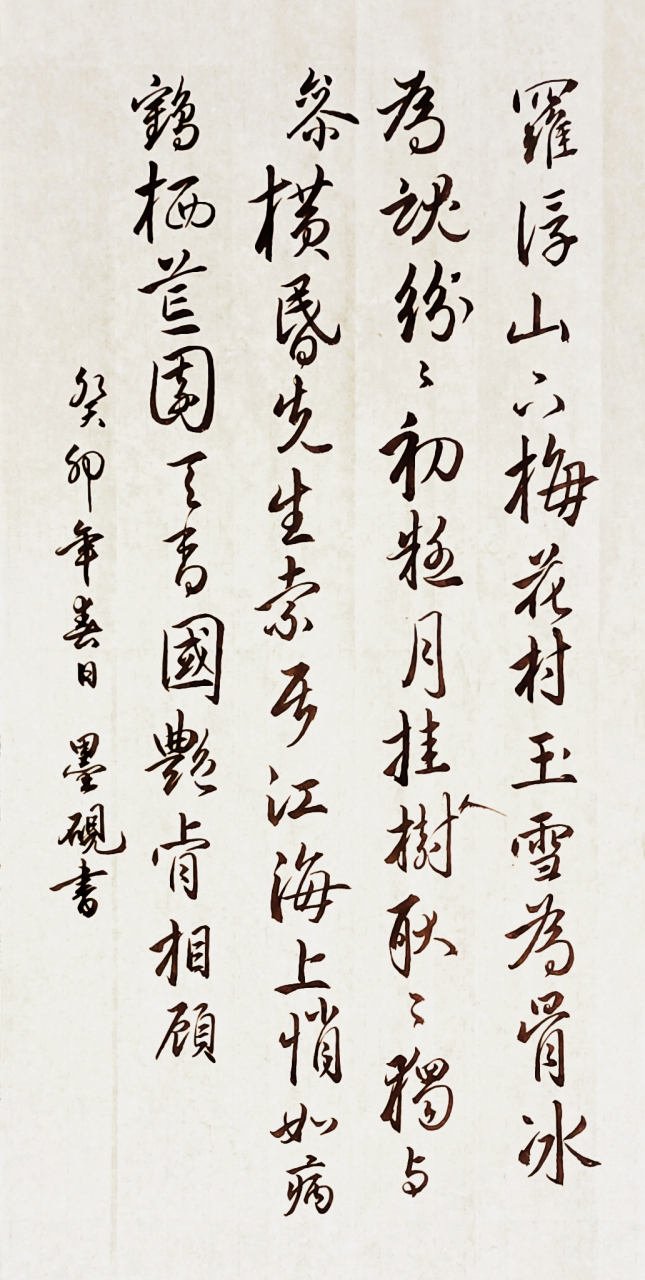 羅浮山下梅花村玉雪為骨冰
為魂紛〻初疑月挂樹耿〻獨与
參横昬先生索居江海上悄如病
鶴栖荒園天香國艷肯相顾
癸卯年春日 墨硯書